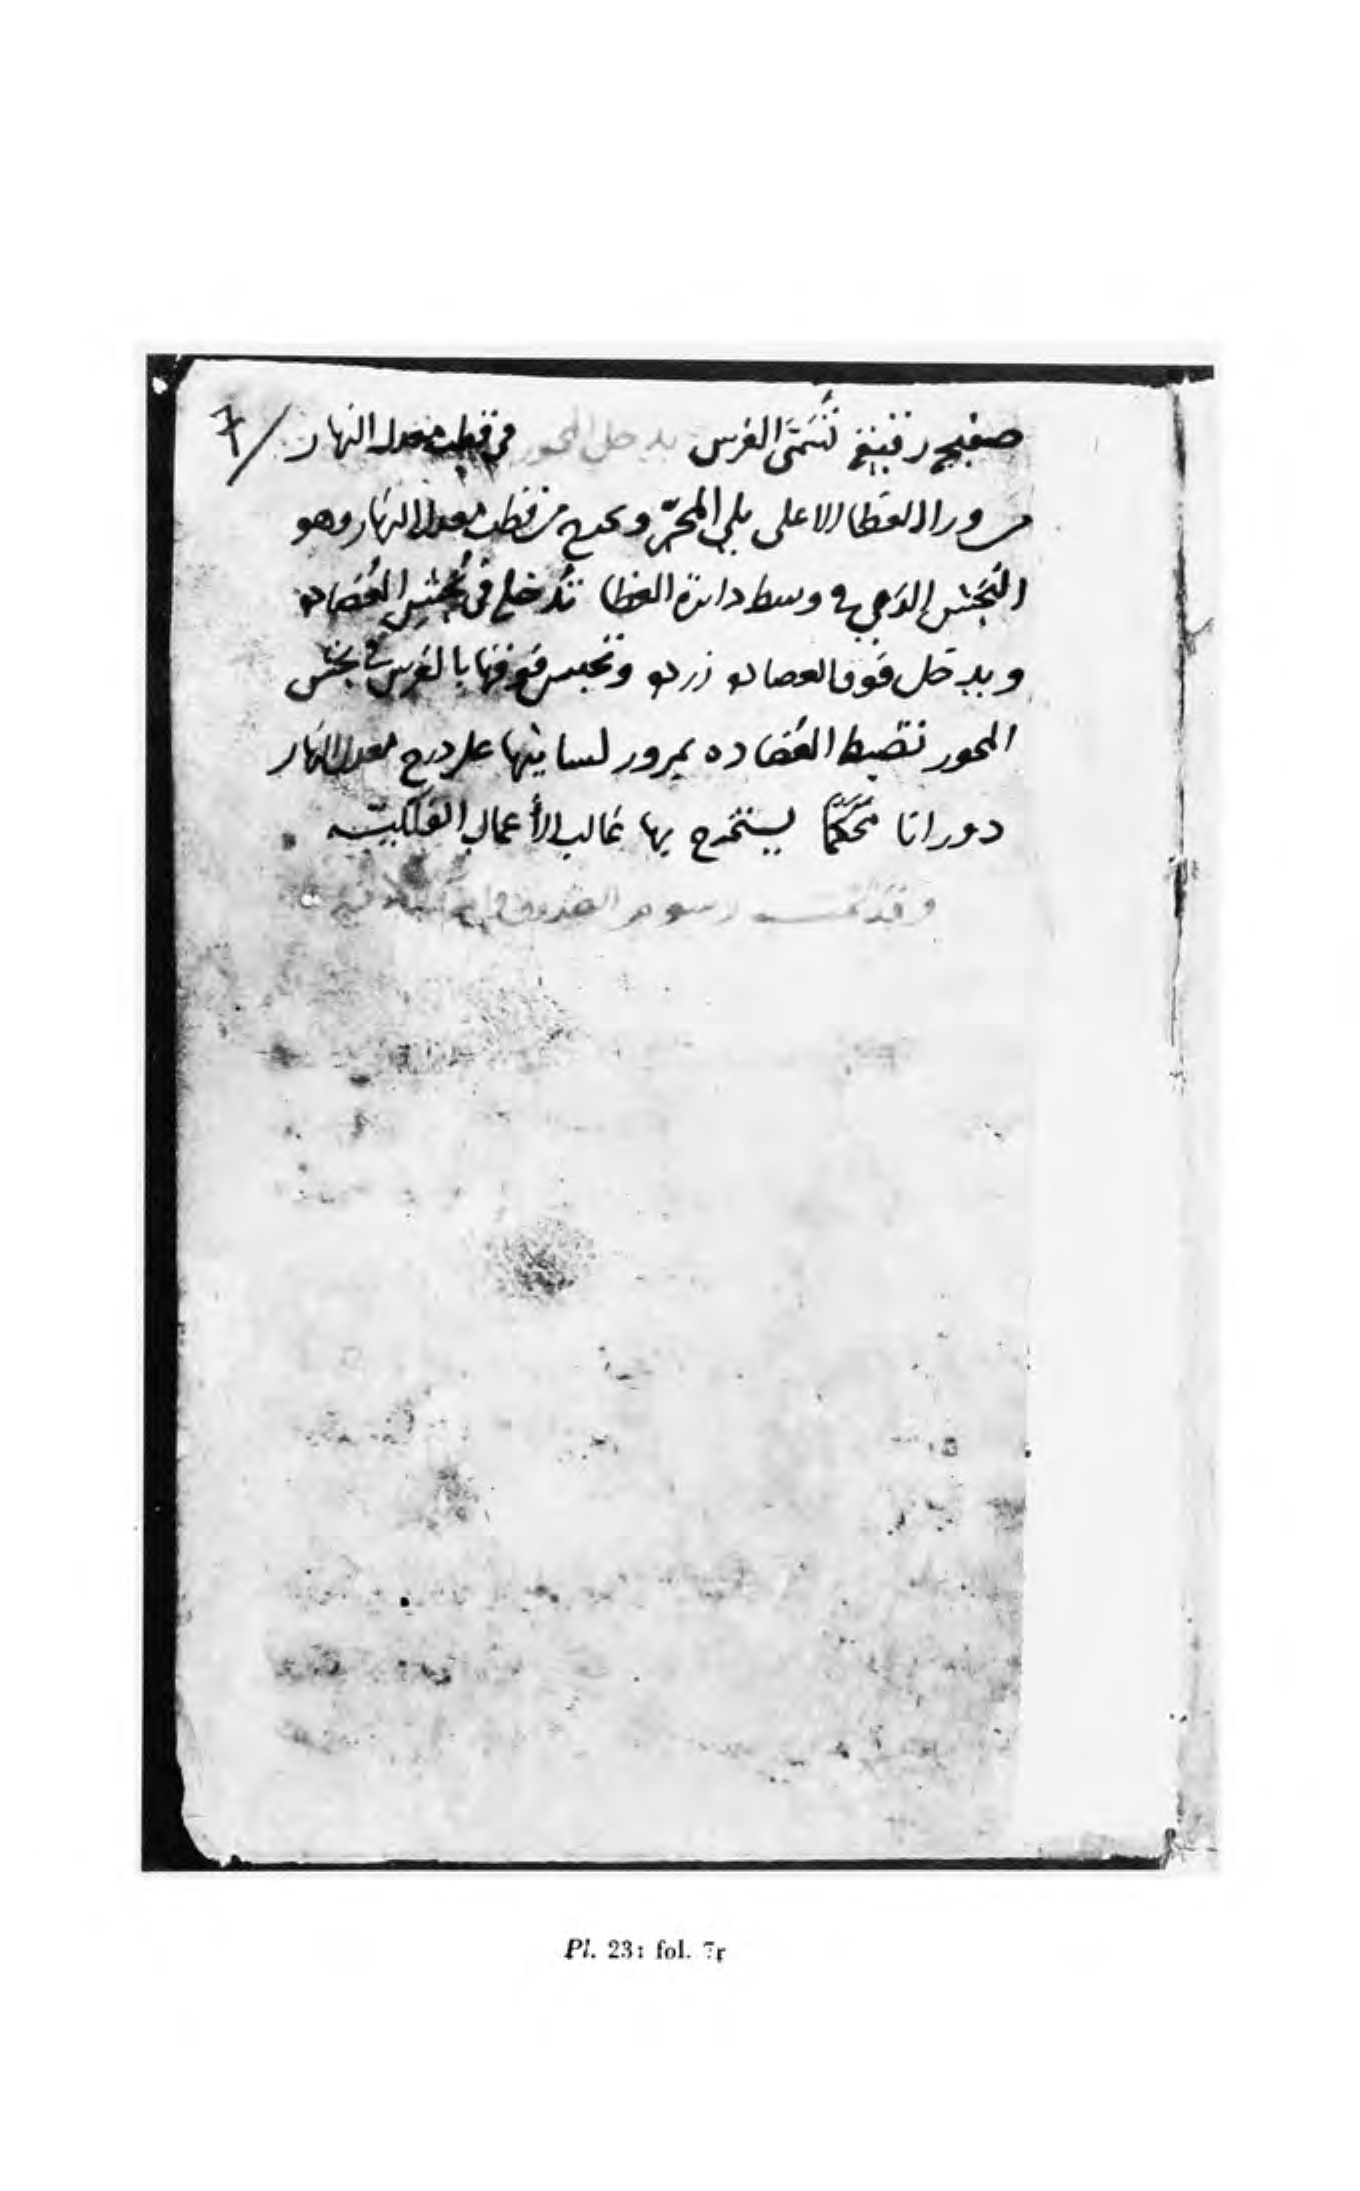 صفيح رقيق تسمى الفرس يدخل المحور في قطب معدل النهار 7
من ورا الغطا الاعلى يلي المجرّ ويخرج من قطب معدل النهار وهو
البخش الذي في وسط دائرة الغطا تدخل في بخش العُضاده
ويدخل فوق العضاده زرده وتحبس فوقها بالفرس في بخش
المحور تضبط العُضاده بمرور لسانيها على درج معدل النهار
دورانا مُحكمًا يستخرج بها غالب الأعمال الفلكيّه
وقد تمت رسوم الصندوق
Pl. 23: fol. 7r